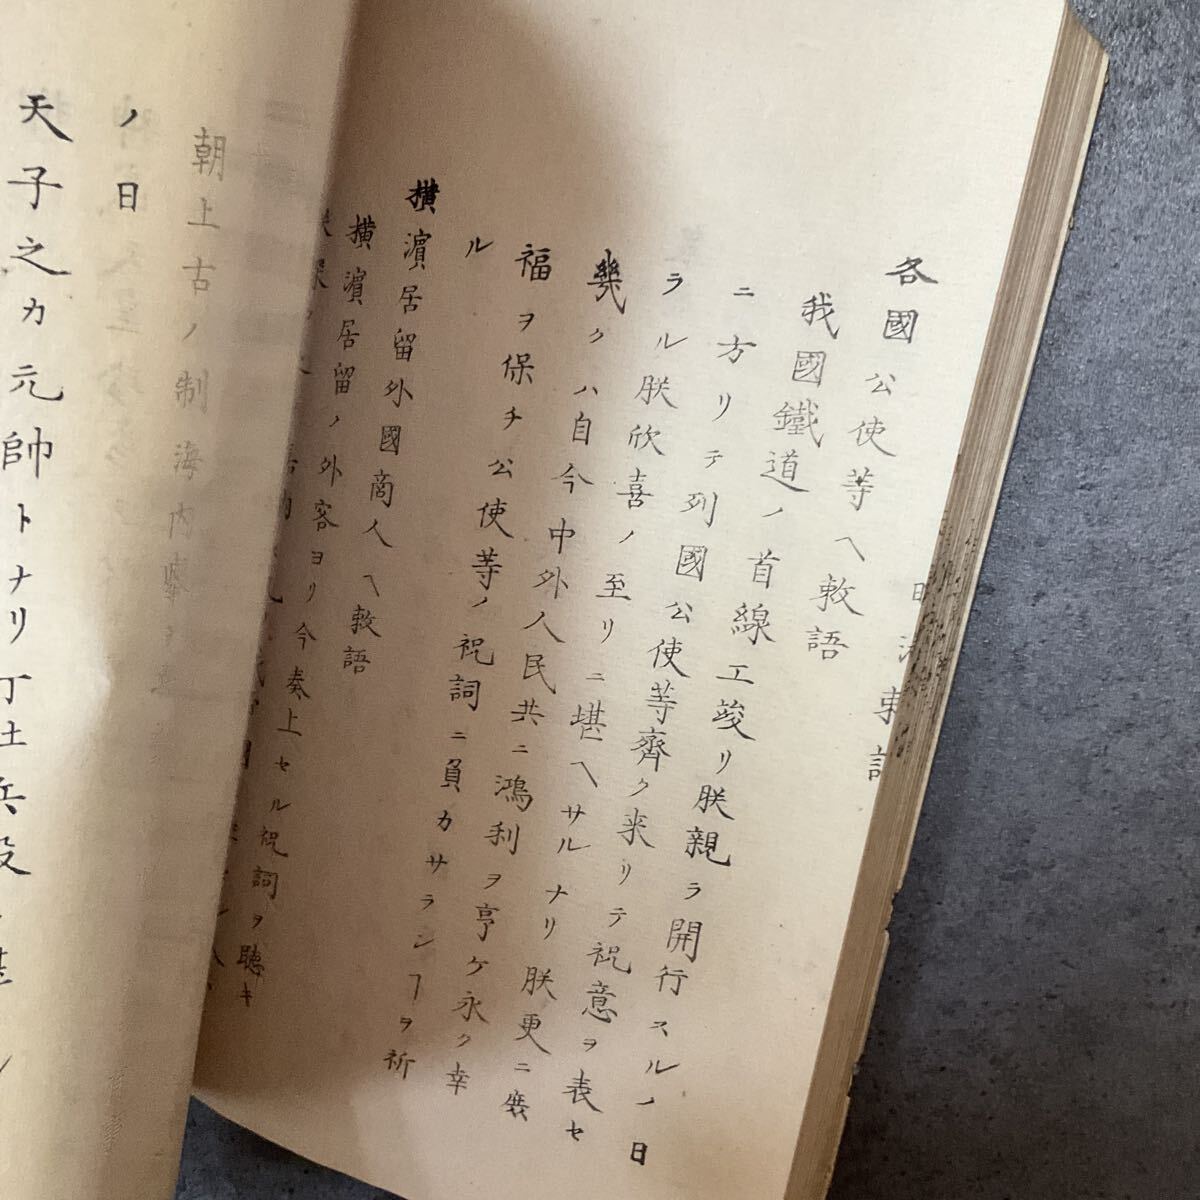 各國公使等ヘ敕語
我國鐵道ノ首線工竣リ朕親ラ開行スルノ日
ニ方リテ列國公使等齊ク来リテ祝意ヲ表セ
ラル朕欣喜ノ至リニ堪ヘサルナリ朕更ニ庶
幾クハ自今中外人民共ニ鴻利ヲ享ケ永ク幸
福ヲ保チ公使等ノ祝詞ニ負カサランヿヲ祈
ル
横濵居留外國商人ヘ敕語
横濵居留ノ外客ヨリ今奏上セル祝詞ヲ聴キ
朝上古ノ制海内擧
ノ日
天子之カ元帥トナリ丁壮兵役